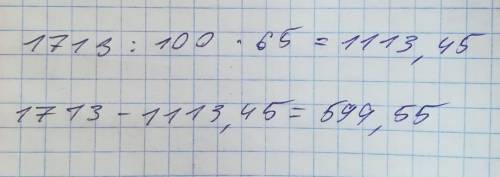 1713 : 100 · 65 = 1113,45
1713 - 1113,45 = 599,55